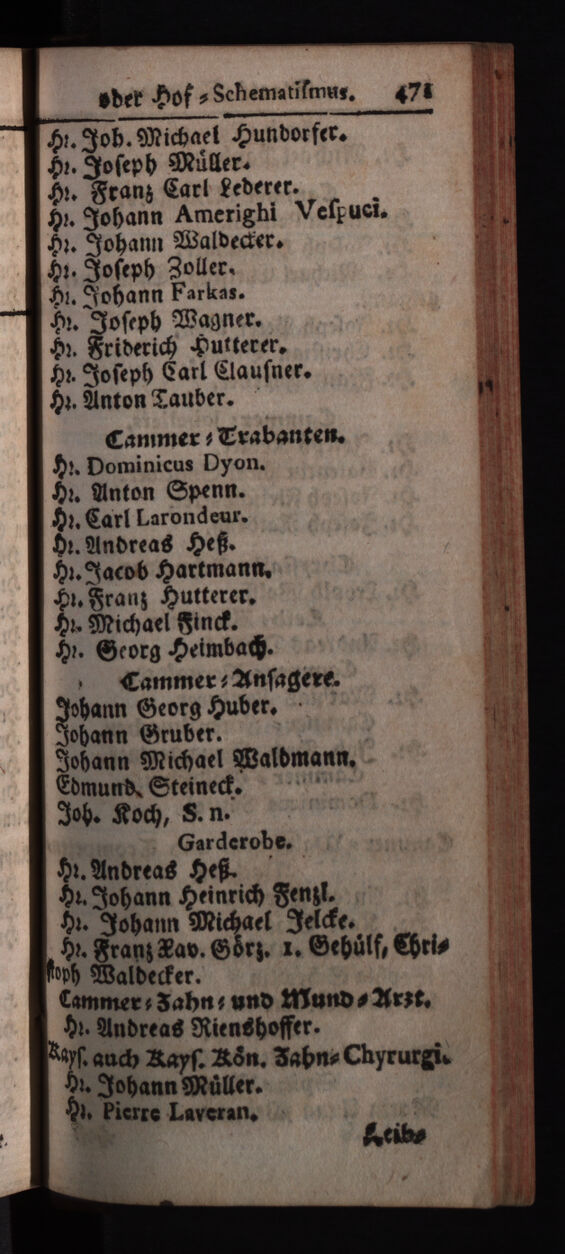 oder Hof-Schematismus. 471
Hr. Joh. Michael Hundorfer.
Hr. Joseph Müller.
Hr. Franz Carl Lederer.
Hr. Johann Amerighi Vespuci.
Hr. Johann Waldecker.
Hr. Joseph Zoller.
Hr. Johann Farkas.
Hr. Joseph Wagner.
Hr. Friderich Hutterer.
Hr. Joseph Carl Clausner.
Hr. Anton Tauber.
Cammer-Trabanten.
Hr. Dominicus Dyon.
Hr. Anton Spenn.
Hr. Carl Larondeur.
Hr. Andreas Heß.
Hr. Jacob Hartmann.
Hr. Franz Hutterer.
Hr. Michael Finck.
Hr. Georg Heimbach.
Cammer-Ansagere.
Johann Georg Huber.
Johann Gruber.
Johann Michael Waldmann.
Edmund Steineck.
Joh. Koch, S. n.
Garderobe.
Hr. Andreas Heß.
Hr. Johann Heinrich Fenzl.
Hr. Johann Michael Jelcke.
Hr. Franz Xav. Görz. 1. Gehülf, Chri-
stoph Waldecker.
Cammer-Zahn- und Mund-Arzt.
Hr. Andreas Rienshoffer.
Kays. auch Kays. Kön. Zahn-Chyrurgi.
Hr. Johann Müller.
Hr. Pierre Laveran.
Leib-